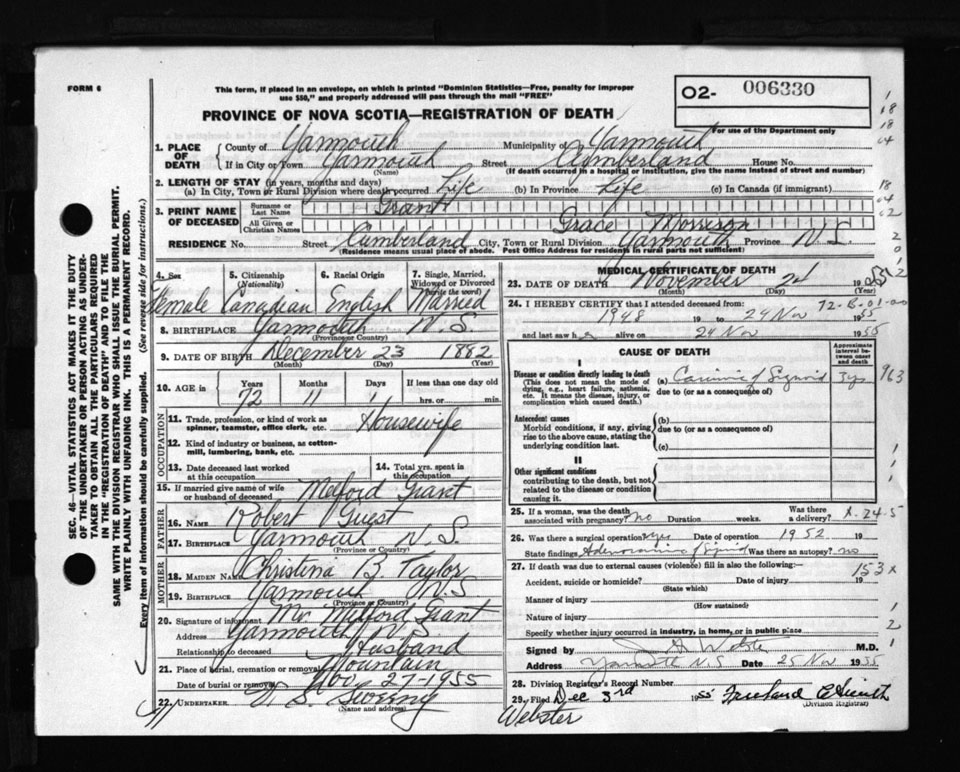 FORM 6
This form, if placed in an envelope, on which is printed "Dominion Statistics—Free, penalty for improper
use $50," and properly addressed will pass through the mail "FREE"
PROVINCE OF NOVA SCOTIA—REGISTRATION OF DEATH
O2- 006330
For use of the Department only
1. PLACE OF DEATH
County of Yarmouth Municipality of Yarmouth
If in City or Town Yarmouth Street Cumberland House No.
(Name) (If death occurred in a hospital or institution, give the name instead of street and number)
2. LENGTH OF STAY (in years, months and days)
(a) In City, Town or Rural Division where death occurred Life (b) In Province Life (c) In Canada (if immigrant)
3. PRINT NAME OF DECEASED
Surname or Last Name Grant
All Given or Christian Names Grace Morrison
RESIDENCE No. Street Cumberland City, Town or Rural Division Yarmouth Province N.S.
(Residence means usual place of abode. Post Office Address for residents in rural parts not sufficient)
4. Sex Female
5. Citizenship (Nationality) Canadian
6. Racial Origin English
7. Single, Married, Widowed or Divorced (write the word) Married
8. BIRTHPLACE Yarmouth N.S.
(Province or Country)
9. DATE OF BIRTH December 23 1882
(Month) (Day) (Year)
10. AGE in Years Months Days If less than one day old
72 11 1 hrs. or min.
OCCUPATION
11. Trade, profession, or kind of work as spinner, teamster, office clerk, etc. Housewife
12. Kind of industry or business, as cotton-mill, lumbering, bank, etc.
13. Date deceased last worked at this occupation
14. Total yrs. spent in this occupation
15. If married give name of wife or husband of deceased Melford Grant
FATHER
16. NAME Robert Guest
17. BIRTHPLACE Yarmouth N.S.
(Province or Country)
MOTHER
18. MAIDEN NAME Christina B Taylor
19. BIRTHPLACE Yarmouth N.S
(Province or Country)
20. Signature of informant Mr. Milford Grant
Address Yarmouth N.S
Relationship to deceased Husband
21. Place of burial, cremation or removal Mountain
Date of burial or removal Nov. 27-1955
22. UNDERTAKER V. S. Sweeny
(Name and address)
MEDICAL CERTIFICATE OF DEATH
23. DATE OF DEATH November 24 1955
(Month) (Day)
24. I HEREBY CERTIFY that I attended deceased from:
72-B-01-00
1948 19 to 24 Nov 1955
and last saw h er alive on 24 Nov 1955
CAUSE OF DEATH
Approximate interval between onset and death
I
Disease or condition directly leading to death
(This does not mean the mode of dying, e.g., heart failure, asthenia, etc. It means the disease, injury, or complication which caused death.)
(a) of Sigmoid 3 yrs 963
due to (or as a consequence of)
Antecedent causes
Morbid conditions, if any, giving rise to the above cause, stating the underlying condition last.
(b)
due to (or as a consequence of)
(c)
II
Other significant conditions
contributing to the death, but not related to the disease or condition causing it.
25. If a woman, was the death associated with pregnancy? no Duration weeks. Was there a delivery? X-24-5
26. Was there a surgical operation yes Date of operation 1952 19
State findings of Sigmoid Was there an autopsy? no
27. If death was due to external causes (violence) fill in also the following:—
153 x
Accident, suicide or homicide? Date of injury 19
(State which)
Manner of injury
(How sustained)
Nature of injury
Specify whether injury occurred in industry, in home, or in public place
Signed by Webster M.D.
Address Yarmouth N.S Date 25 Nov 1955
28. Division Registrar's Record Number
29. Filed Dec 3rd 1955
(Division Registrar)
Webster
SEC. 46—VITAL STATISTICS ACT MAKES IT THE DUTY
OF THE UNDERTAKER OR PERSON ACTING AS UNDER-
TAKER TO OBTAIN ALL THE PARTICULARS REQUIRED
IN THE "REGISTRATION OF DEATH" AND TO FILE THE
SAME WITH THE DIVISION REGISTRAR WHO SHALL ISSUE THE BURIAL PERMIT.
WRITE PLAINLY WITH UNFADING INK. THIS IS A PERMANENT RECORD.
Every item of information should be carefully supplied. (See reverse side for instructions.)